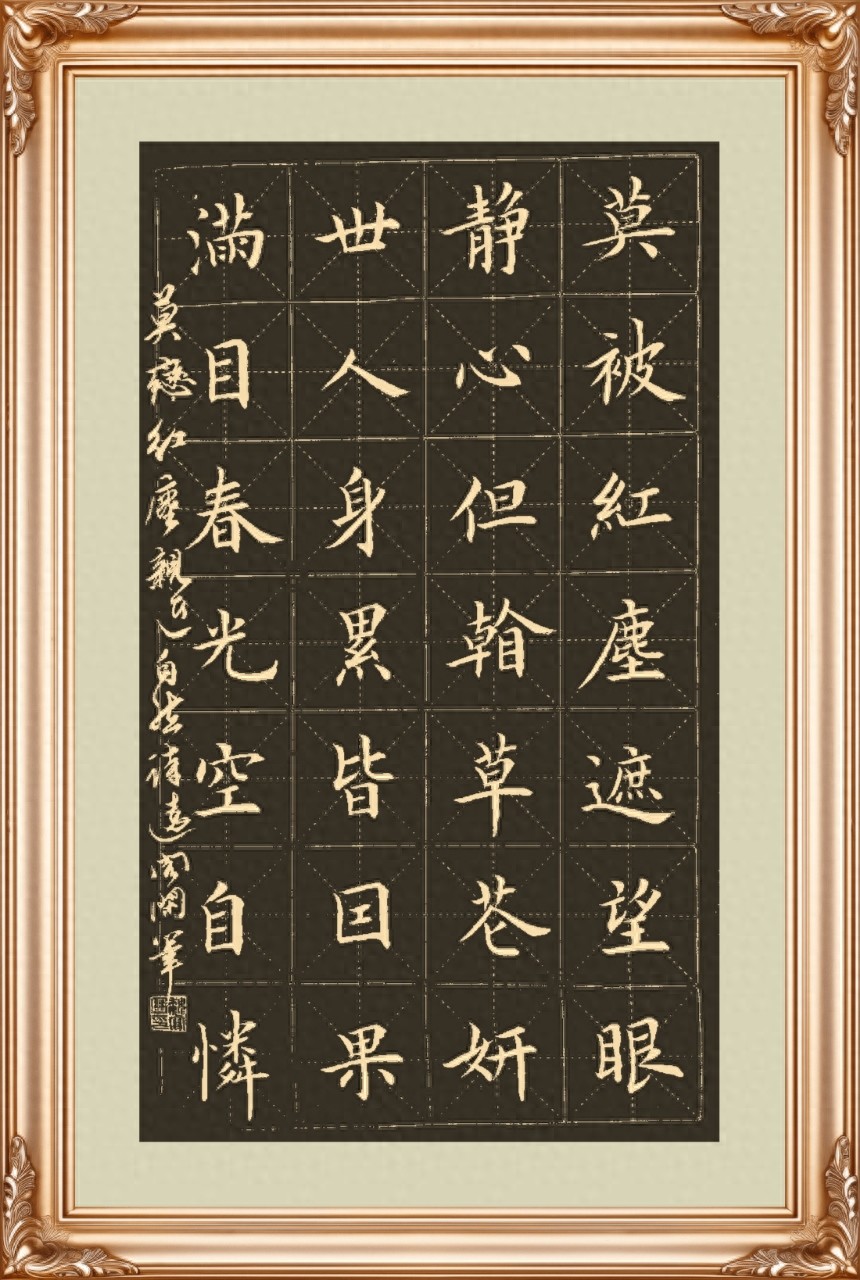 莫被紅塵遮望眼
靜心但草花妍
世人身累皆囙果
滿目春光空自憐
莫戀紅塵親近自然詩